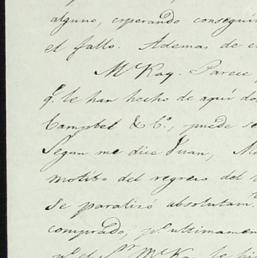 alguno, esperando consegui
el fallo. Ademas de e
McKay. Parece,
q.e le han hecho de aqui do
Campbel & C.o, puede se
Segun me dice Juan, M
motibo del regreso del
se paralizó absolutam.te
comprado, p.r ultimamen
el S.r McKa le hi